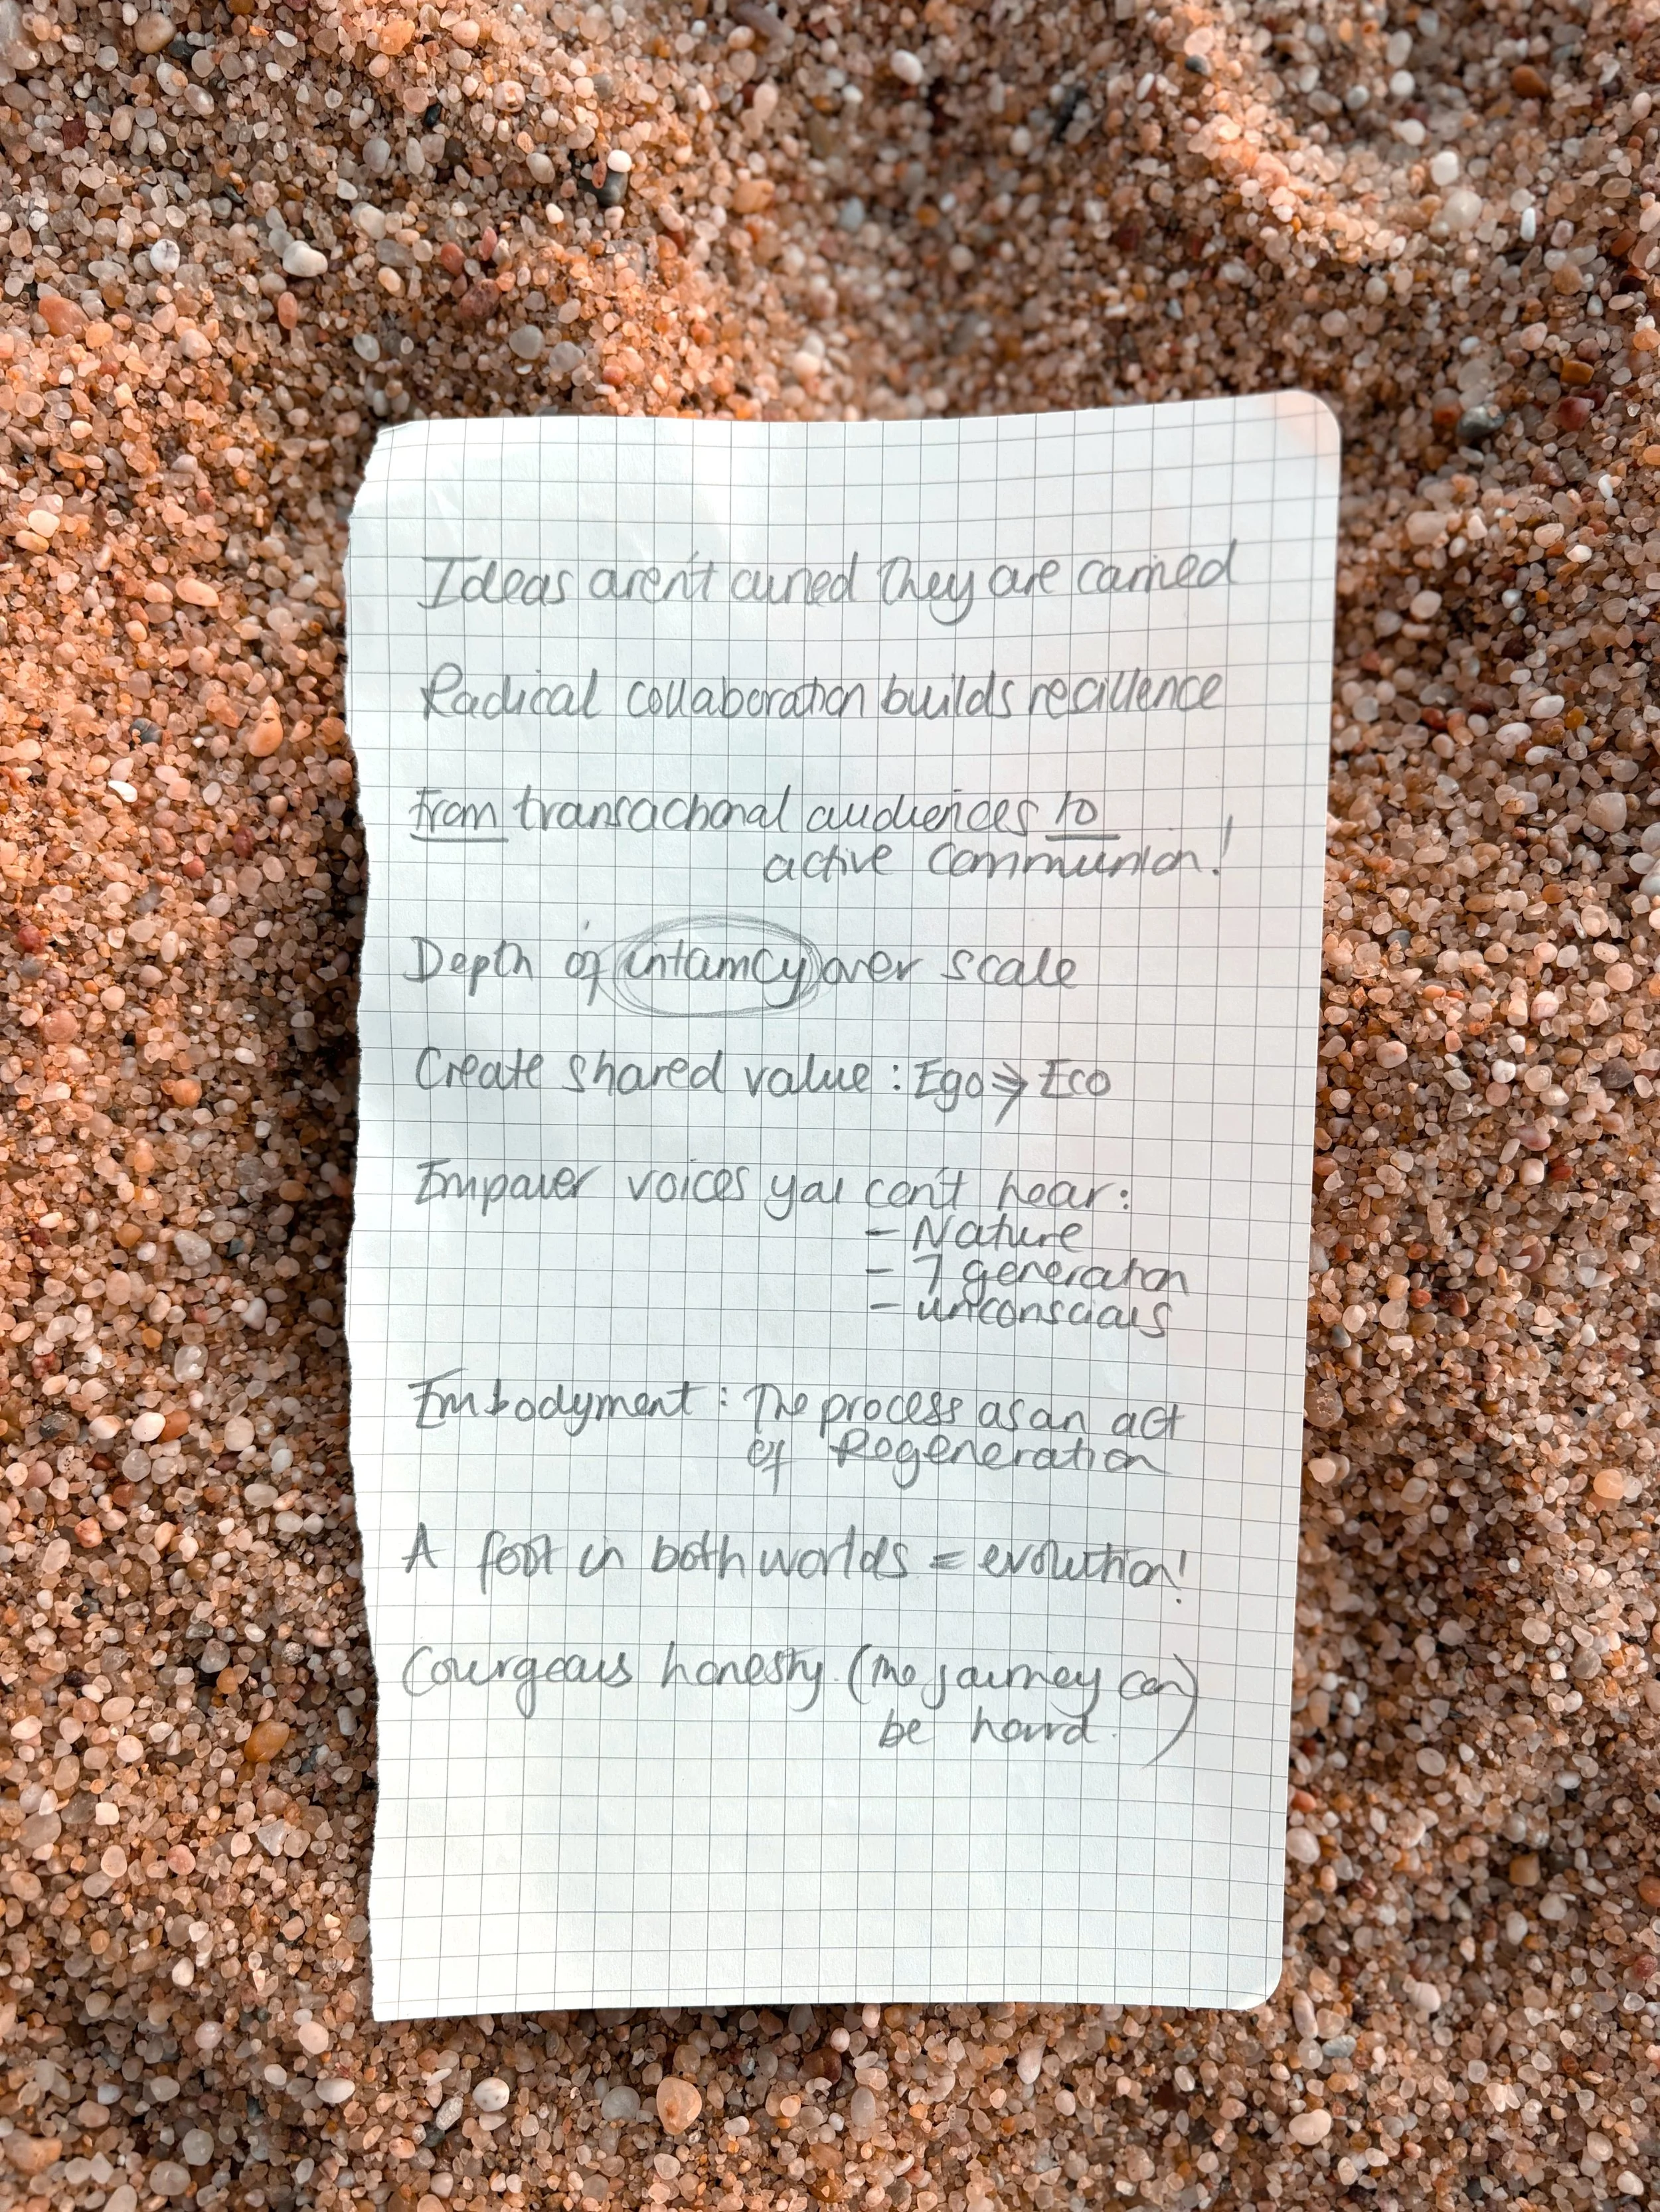 Ideas aren't owned They are carried
Radical collaboration builds resillence
From transactional audiences to
active Communion!
Depth of intamcy over scale
Create shared value : Ego → Eco
Empower voices you can't hear:
- Nature
- 7 generation
- unconscious
Embodyment : The process as an act
of Regeneration
A foot in both worlds = evolution!
Courgeous honesty. (The journey can
be hard.)